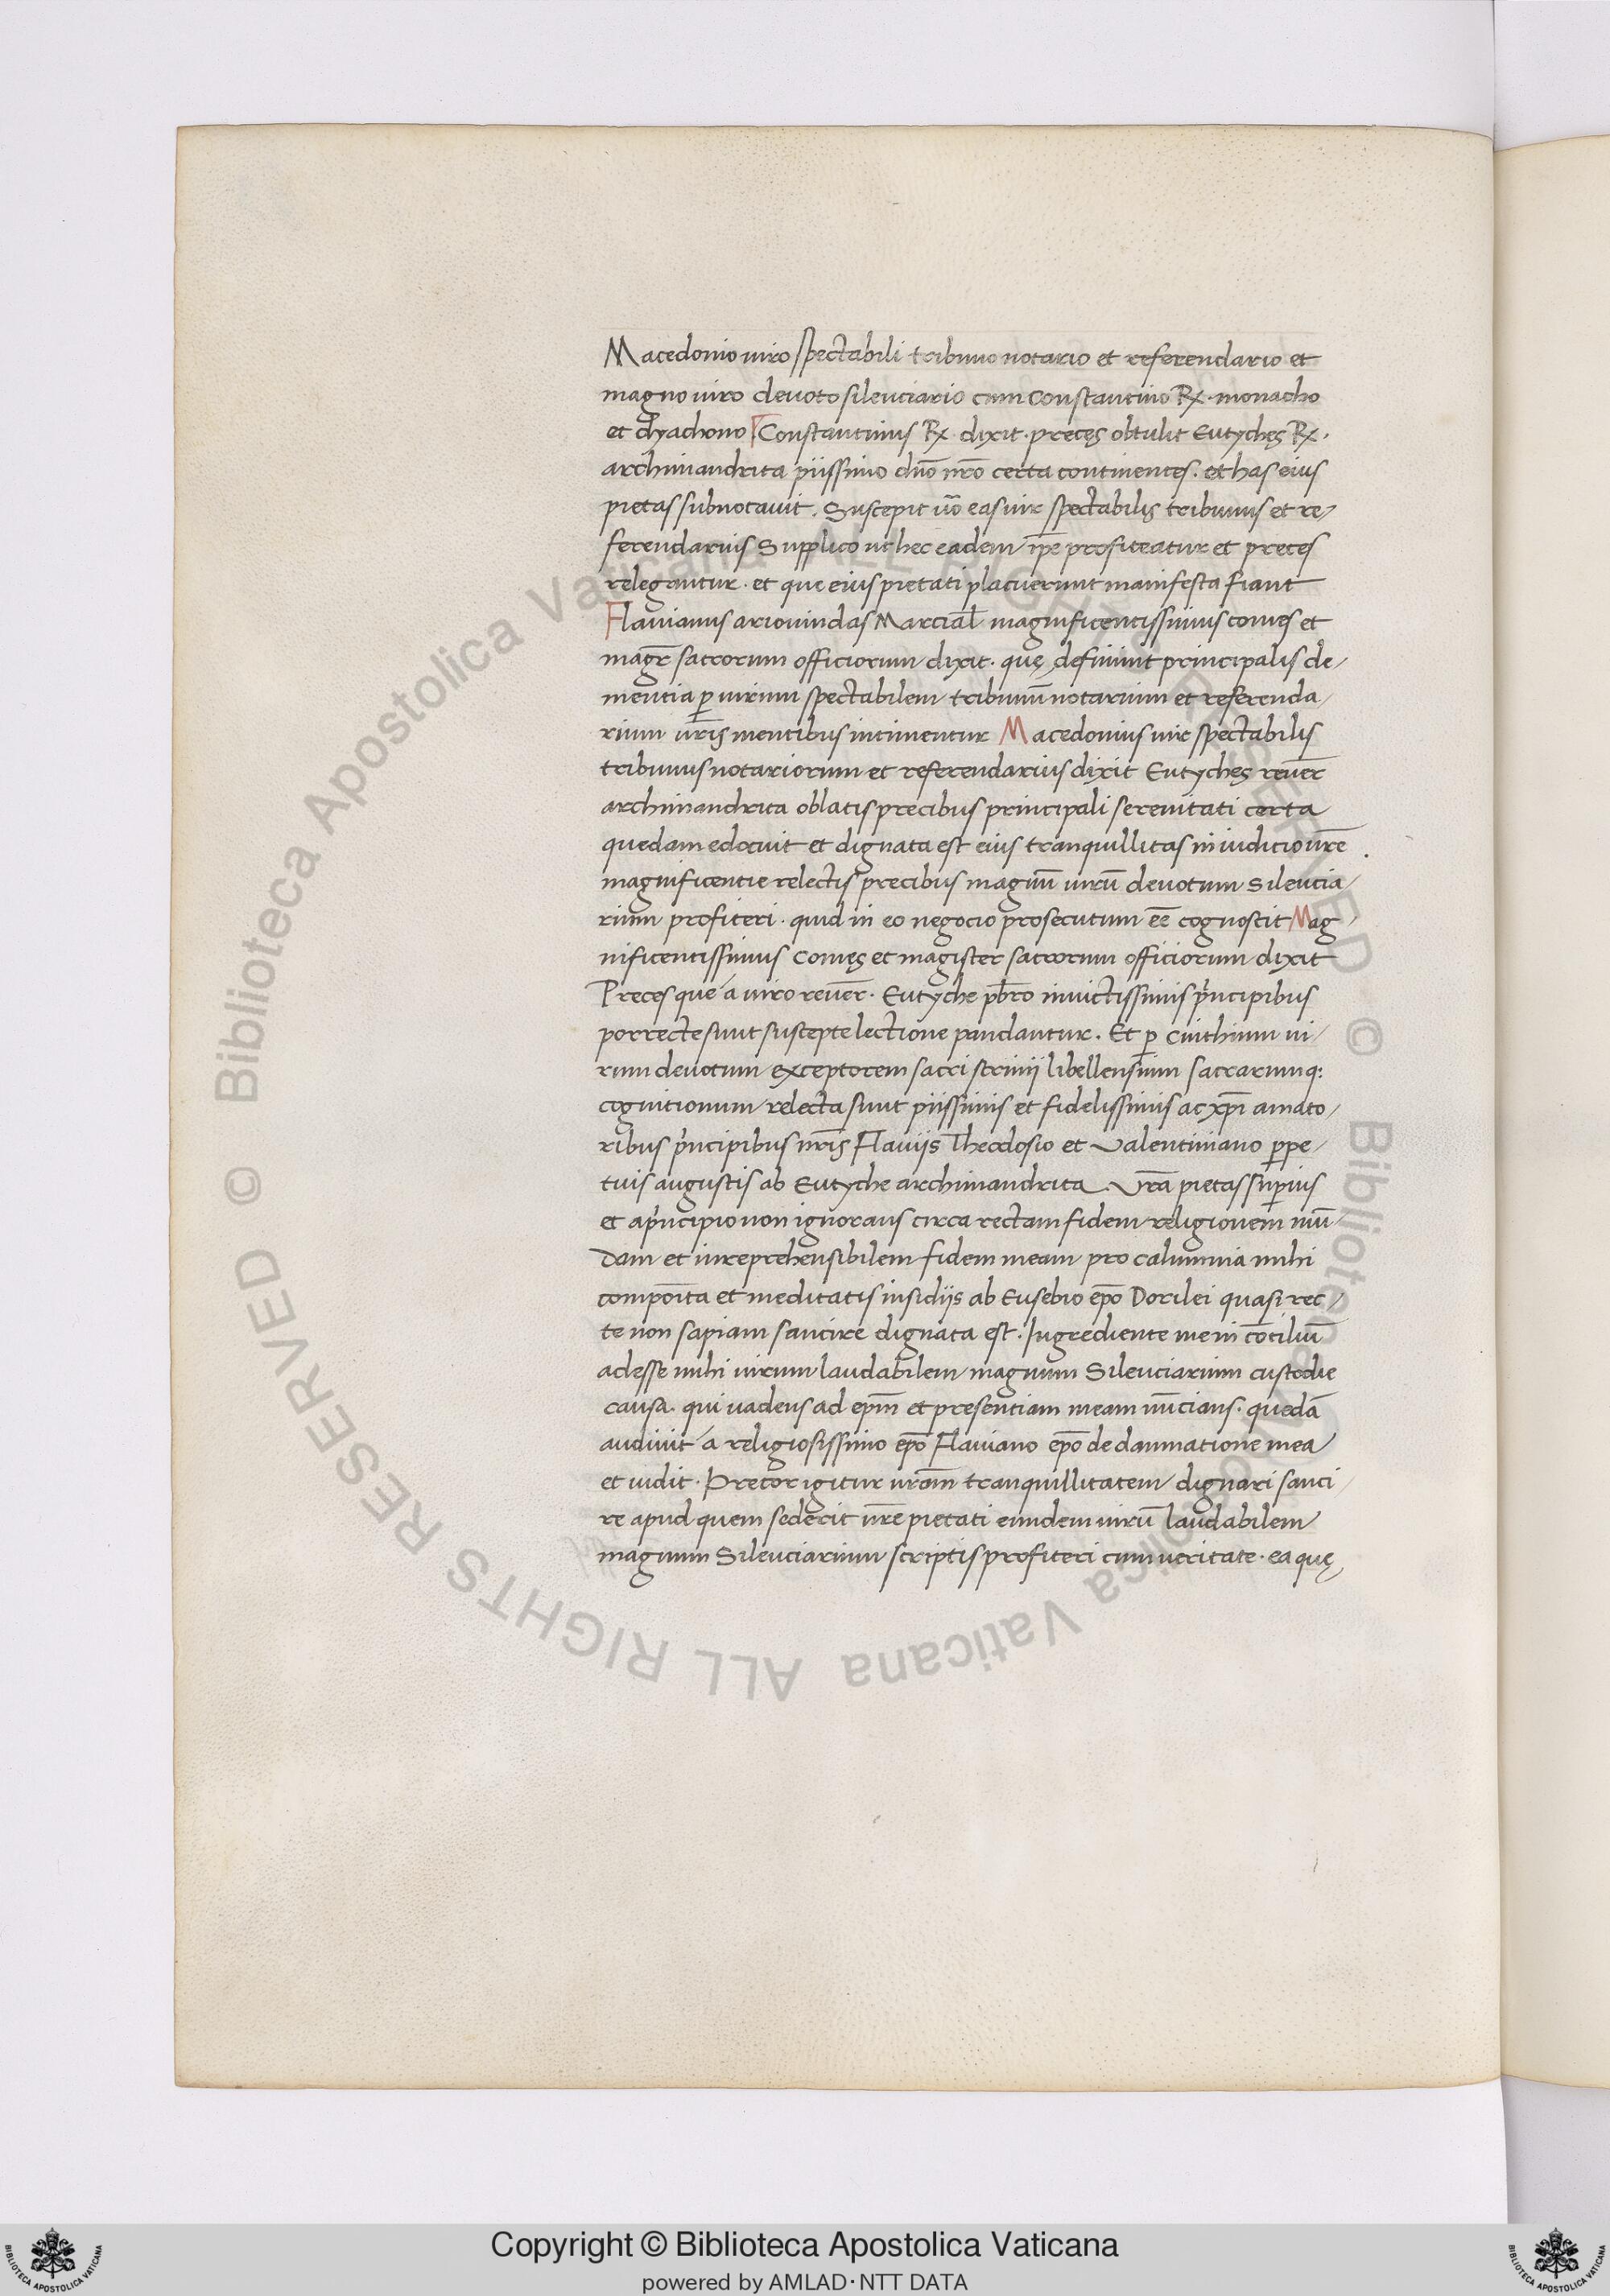 Macedonio uiro spectabili tribuno notario et referendario et
magno uiro deuoto silenciario cum Constantino R͞x. monacho
et dyachono Constantinus R͞x. dixit. precęs obtulit Eutychęs R͞x.
archimandrita piissimo dn̄o nr̄o certa continentes. et has eius
pietas subnotauit. Suscepit ūo eas uir spectabilis tribunus et re/
ferendarius Supplico ut hec eadem ip̄e profiteatur et preces
relegantur. et que eius pietati placuerunt manifesta fiant
Flauianus ariouindas Marcial̄ magnificentissimus comęs et
magr̄ sacrorum officiorum dixit. quę definiuit principalis cle/
mencia p̱ uirum spectabilem tribunū notarium et referenda/
rium ur̄is mentibus intimentur Macedonius uir spectabilis
tribunus notariorum et referendarius dixit Eutychęs reuer̄
archimandrita oblatis precibus principali serenitati certa
quedam edocuit et dignata est eius tranquillitas in iudicio ur̄e
magnificentie relectis precibus magnū uirū deuotum silencia/
rium profiteri. quid in eo negocio prosecutum eē cognoscit Mag/
nificentissimus comęs et magister sacrorum officiorum dixit
Preces que a uiro reuer̄. Eutyche pb̄ro inuictissimis p'ncipibus
porrecte sunt suscepte lectione pandantur. Et p̱ Cuithium ui/
rum deuotum exceptorem sacri scrinij libellensium sacrarumq:
cognitionum relecta sunt piissimis et fidelissimis ac xp̄i amato/
ribus p'ncipibus nr̄is Flauijs Theodosio et Valentiniano p̱pe/
tuis augustis ab Eutyche archimandrita. Vr̄a pietas sup̱ius
et a p'ncipio non ignorans circa rectam fidem religionem mū/
dam et inreprehensibilem fidem meam pro calumnia mihi
compoīta et meditatis insidijs ab Eusebio ep̄o Dorilei quasi rec/
te non sapiam sancire dignata est. Ingrediente me in cōciliū
adesse mihi uirum laudabilem magnum Silenciarium custodie
causa. qui uadens ad ep̄m et presentiam meam nūcians. quedā
audiuit a religiosissimo ep̄o Flauiano ep̄o de damnatione mea
et uidit. Precor igitur ur̄am tranquillitatem dignari sanci/
re apud quem sederit ur̄e pietati eundem uirū laudabilem
magnum Silenciarium scriptis profiteri cum ueritate. ea quę
Copyright © Biblioteca Apostolica Vaticana
powered by AMLAD·NTT DATA